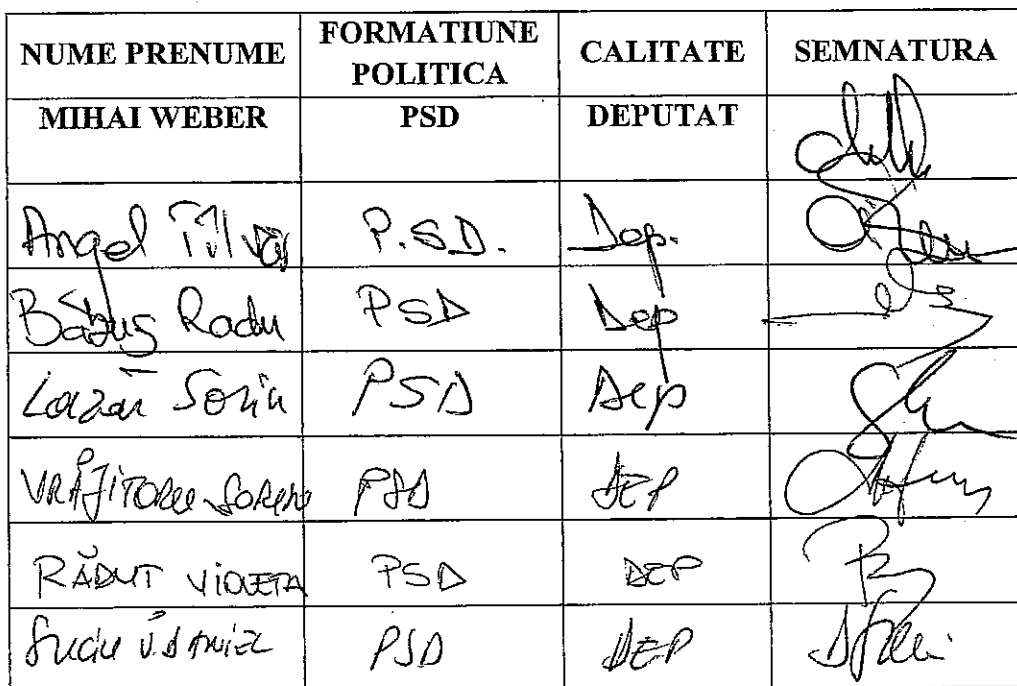 NUME PRENUME FORMATIUNE POLITICA CALITATE SEMNATURA
MIHAI WEBER PSD DEPUTAT
Angel Tîlvăr P.S.D. Dep.
Băbuș Radu PSD Dep
Lazăr Sorin PSD Dep
VRĂJITORU SORIN PSD DEP
RĂDUT VIOLETA PSD DEP
Suciu V. DANIEL PSD DEP